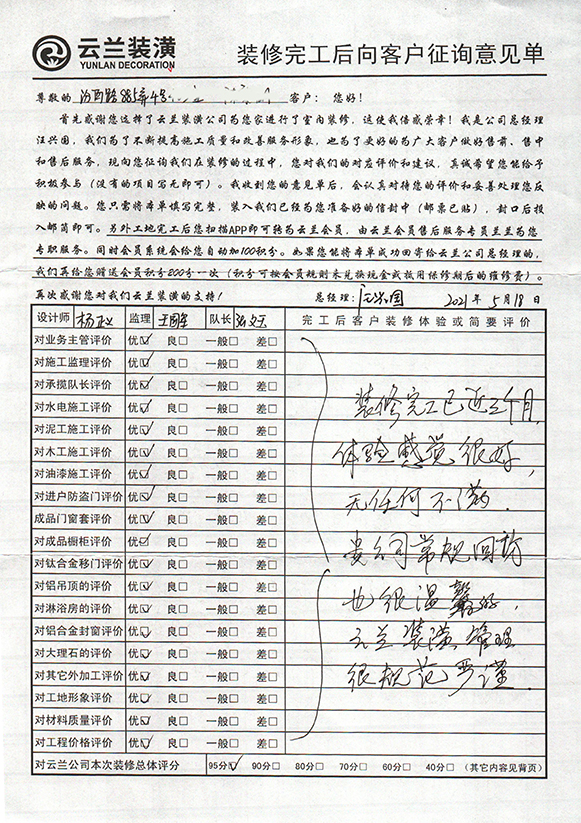 云兰装潢
YUNLAN DECORATION
装修完工后向客户征询意见单
尊敬的 汾西路885弄4号 客户：您好！
首先感谢您选择了云兰装潢公司为您家进行了室内装修，这使我倍感荣幸！我是公司总经理
汪兴国，我们为了不断提高施工质量和改善服务形象，也为了更好的为广大客户做好售前、售中
和售后服务，现向您征询我们在装修的过程中，您对我们的对应评价和建议，真诚希望您能给予
积极参与（没有的项目写无即可）。我收到您的意见单后，会认真对待您的评价和妥善处理您反
映的问题。您只需将本单填写完整，装入我们已经为您准备好的信封中（邮票已贴），封口后投
入邮筒即可。另外工地完工后您扫描APP即可转为云兰会员，由云兰会员售后服务专员兰兰为您
专职服务。同时会员系统会给您自动加100积分。如果您能将本单成功回寄给云兰公司总经理的，
我们再给您赠送会员积分200分一次（积分可按会员规则来兑换现金或抵用保修期后的维修费）。
再次感谢您对我们云兰装潢的支持！ 总经理：汪兴国 2021年5月18日
设计师 杨政 监理 王国军 队长 完工后客户装修体验或简要评价
对业务主管评价 优☑ 良□ 一般□ 差□
对施工监理评价 优☑ 良□ 一般□ 差□
对承揽队长评价 优☑ 良□ 一般□ 差□
对水电施工评价 优☑ 良□ 一般□ 差□
对泥工施工评价 优☑ 良□ 一般□ 差□
对木工施工评价 优☑ 良□ 一般□ 差□
对油漆施工评价 优☑ 良□ 一般□ 差□
对进户防盗门评价 优☑ 良□ 一般□ 差□
成品门窗套评价 优☑ 良□ 一般□ 差□
对成品橱柜评价 优☑ 良□ 一般□ 差□
对钛合金移门评价 优☑ 良□ 一般□ 差□
对铝吊顶的评价 优☑ 良□ 一般□ 差□
对淋浴房的评价 优☑ 良□ 一般□ 差□
对铝合金封窗评价 优☑ 良□ 一般□ 差□
对大理石的评价 优☑ 良□ 一般□ 差□
对其它外加工评价 优☑ 良□ 一般□ 差□
对工地形象评价 优☑ 良□ 一般□ 差□
对材料质量评价 优☑ 良□ 一般□ 差□
对工程价格评价 优☑ 良□ 一般□ 差□
装修完工已近三个月，
体验感觉很好，
无任何不满。
贵公司常规回访
也很温馨好，
云兰装潢管理
很规范严谨.
对云兰公司本次装修总体评分 95分☑ 90分□ 80分□ 70分□ 60分□ 40分□ （其它内容见背页）